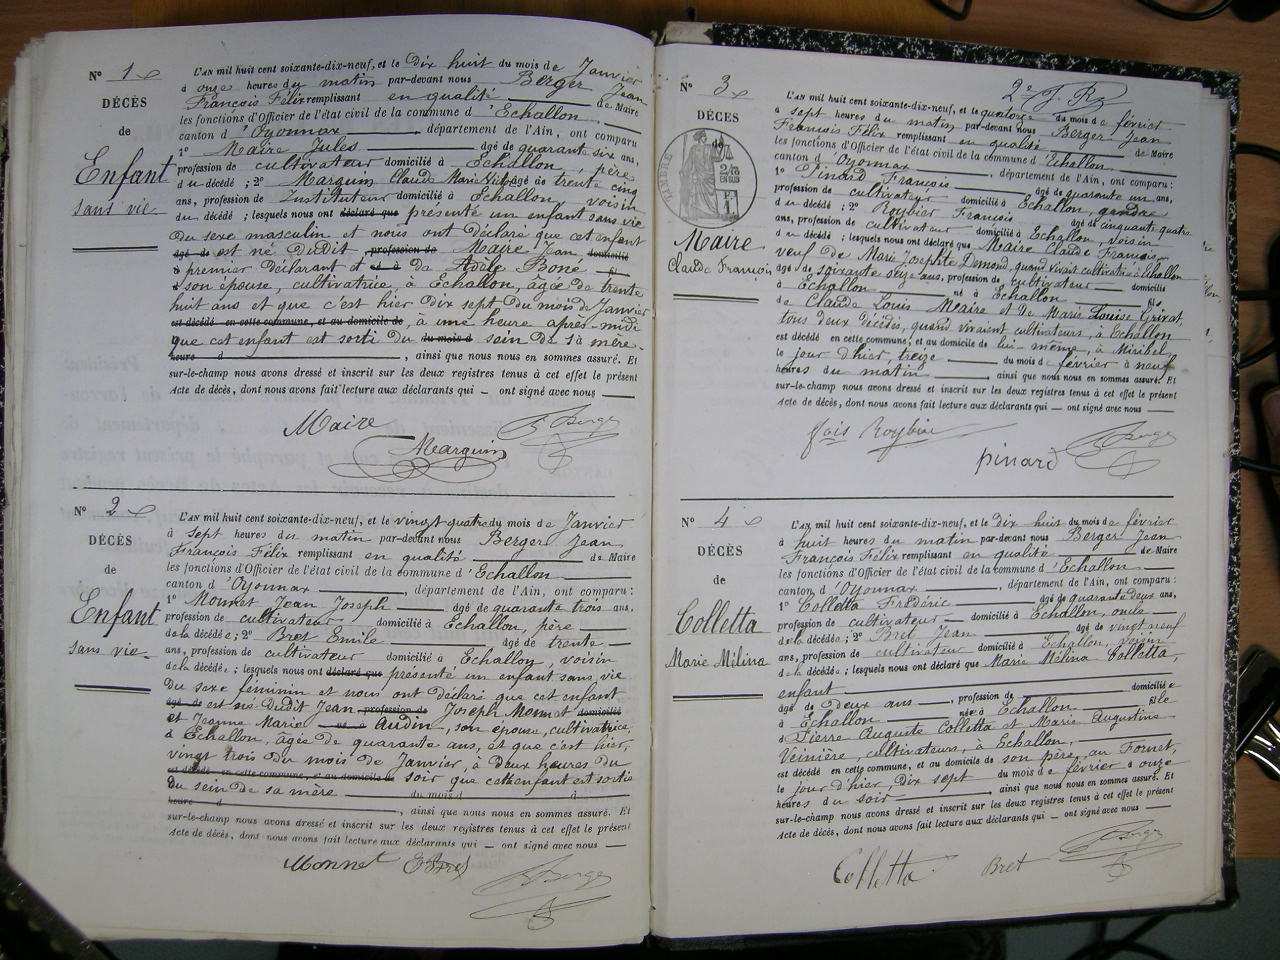 N° 1
DÉCÈS
de
Enfant
sans vie
L'AN mil huit cent soixante-dix-neuf, et le Dix huit du mois de Janvier
à onze heures du matin par-devant nous Berger Jean
François Félix remplissant en qualité de Maire
les fonctions d'Officier de l'état civil de la commune d'Echallon
canton d'Oyonnax, département de l'Ain, ont comparu
1° Maire Jules âgé de quarante six ans,
profession de cultivateur domicilié à Echallon, père
d u décédé ; 2° Marguin Claude Marie âgé de trente cinq
ans, profession de Instituteur domicilié à Echallon, voisin
du décédé ; lesquels nous ont déclaré que présenté un enfant sans vie
du sexe masculin et nous ont déclaré que cet enfant
âgé de est né dudit profession de Maire Jean domicilié
à premier déclarant et de Adèle Boné
son épouse, cultivatrice, à Echallon, âgée de trente
huit ans et que c'est hier dix sept du mois de Janvier
est décédé en cette commune, et au domicile de, à une heure après-midi
que cet enfant est sorti du du mois d sein de sa mère
heures d, ainsi que nous nous en sommes assuré. Et
sur-le-champ nous avons dressé et inscrit sur les deux registres tenus à cet effet le présent
Acte de décès, dont nous avons fait lecture aux déclarants qui — ont signé avec nous
Maire
Marguin
Berger
N° 2
DÉCÈS
de
Enfant
sans vie
L'AN mil huit cent soixante-dix-neuf, et le vingt quatre du mois de Janvier
à sept heures du matin par-devant nous Berger Jean
François Félix remplissant en qualité de Maire
les fonctions d'Officier de l'état civil de la commune d'Echallon
canton d'Oyonnax, département de l'Ain, ont comparu :
1° Monnet Jean Joseph âgé de quarante trois ans,
profession de cultivateur domicilié à Echallon, père
de la décédée ; 2° Bret Emile âgé de trente
ans, profession de cultivateur domicilié à Echallon, voisin
de la décédée ; lesquels nous ont déclaré que présenté un enfant sans vie
du sexe féminin et nous ont déclaré que cet enfant
âgé de est née dudit Jean profession de Joseph Monnet domicilié
et Jeanne Marie Audin, son épouse, cultivatrice,
à Echallon, âgée de quarante ans, et que c'est hier,
vingt trois du mois de Janvier, à deux heures du
est décédé en cette commune, et au domicile de soir que cet enfant est sortie
du sein de sa mère du mois d à
heures d, ainsi que nous nous en sommes assuré. Et
sur-le-champ nous avons dressé et inscrit sur les deux registres tenus à cet effet le présent
Acte de décès, dont nous avons fait lecture aux déclarants qui — ont signé avec nous
Monnet Bret
Berger
N° 3
DÉCÈS
de
TIMBRE
Maire
Claude François
L'AN mil huit cent soixante-dix-neuf, et le quatorze du mois de février
à sept heures du matin par-devant nous Berger Jean
François Félix remplissant en qualité de Maire
les fonctions d'Officier de l'état civil de la commune d'Echallon
canton d'Oyonnax, département de l'Ain, ont comparu :
1° Pinard François âgé de quarante un ans,
profession de cultivateur domicilié à Echallon, gendre
d u décédé ; 2° Roybier François âgé de cinquante quatre
ans, profession de cultivateur domicilié à Echallon, voisin
d u décédé ; lesquels nous ont déclaré que Maire Claude François
veuf de Marie Josephte quand vivait cultivatrice à Echallon
âgé de soixante seize ans, profession de cultivateur domicilié
à Echallon né à Echallon fils
de Claude Louis Maire et de Marie Louise
tous deux décédés, quand vivaient cultivateurs, à Echallon
est décédé en cette commune, et au domicile de lui-même, à Miribel
le jour d'hier, treize du mois de février à neuf
heures du matin ainsi que nous nous en sommes assuré. Et
sur-le-champ nous avons dressé et inscrit sur les deux registres tenus à cet effet le présent
Acte de décès, dont nous avons fait lecture aux déclarants qui — ont signé avec nous
fois Roybier
pinard
Berger
N° 4
DÉCÈS
de
Colletta
Marie Mélina
L'AN mil huit cent soixante-dix-neuf, et le Dix huit du mois de février
à huit heures du matin par-devant nous Berger Jean
François Félix remplissant en qualité de Maire
les fonctions d'Officier de l'état civil de la commune d'Echallon
canton d'Oyonnax, département de l'Ain, ont comparu :
1° Colletta Frédéric âgé de quarante deux ans,
profession de cultivateur domicilié à Echallon, oncle
de la décédée ; 2° Bret Jean âgé de vingt neuf
ans, profession de cultivateur domicilié à Echallon, voisin
de la décédée ; lesquels nous ont déclaré que Marie Mélina Colletta,
enfant
âgée de deux ans, profession de domiciliée
à Echallon née à Echallon fille
de Pierre Auguste Colletta et Marie Augustine
Veinière, cultivateurs, à Echallon,
est décédé en cette commune, et au domicile de son père, au Fornet,
le jour d'hier, dix sept du mois de février à onze
heures du soir, ainsi que nous nous en sommes assuré. Et
sur-le-champ nous avons dressé et inscrit sur les deux registres tenus à cet effet le présent
Acte de décès, dont nous avons fait lecture aux déclarants qui — ont signé avec nous
Colletta Bret
Berger